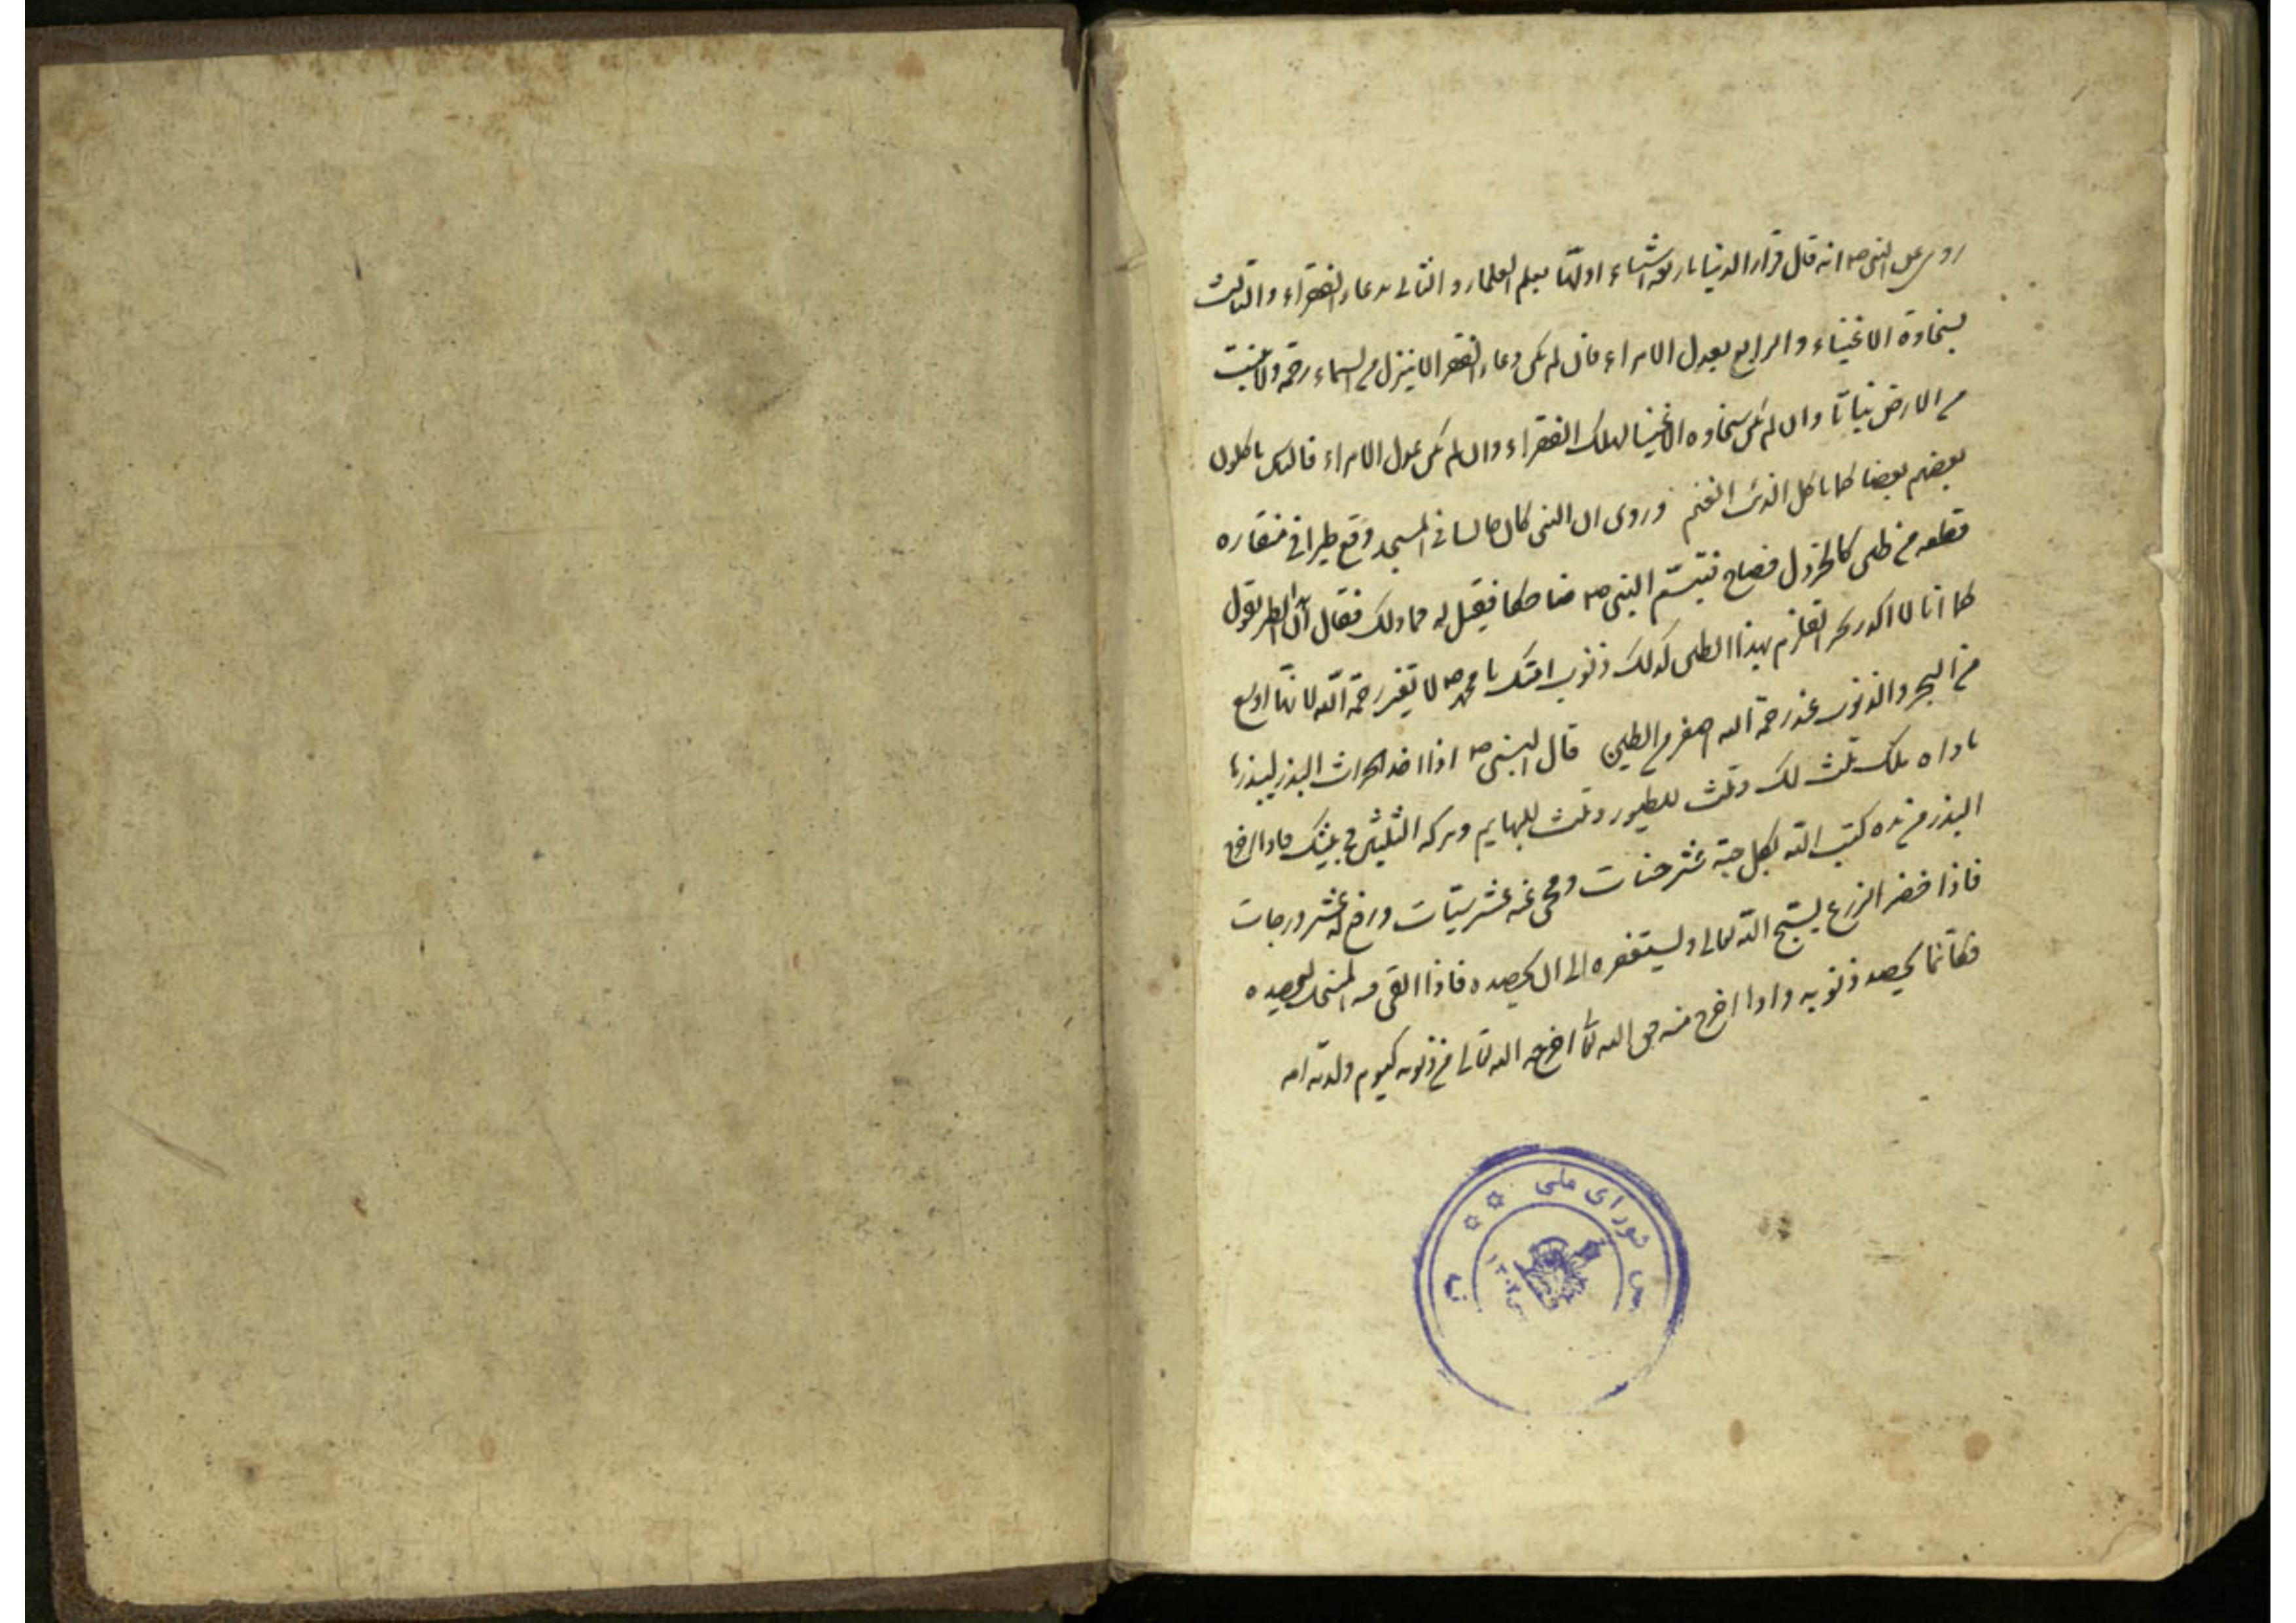 روی عن النبی ص انه قال قرار الدنیا باربعة اشیاء اولها بعلم العلماء و الثانی بدعاء الفقراء و الثالث
بسخاوة الاغنیاء و الرابع بعدل الامراء فان لم یکن دعاء الفقرا لا ینزل من السماء رحمة و لا تنبت
من الارض نباتا و ان لم یکن سخاوه الاغنیا لهلک الفقراء و ان لم یکن عدل الامراء فالناس یاکلون
بعضهم بعضا کما یاکل الذئب الغنم و روی ان النبی کان جالسا فی المسجد وقع طیرا فی منقاره
قطعه من طین کالخردل فصاح فتبسّم النبی ص ضاحکا فقیل له مما ذلک فقال انّ الطیر یقول
کما انا لا اکدر بحر القلزم بهذا الطین کذلک ذنوب امتک یا محمد ص لا تغیر رحمة اللّه لانها اوسع
من البحر و الذنوب عند رحمة الله اصغر من الطین قال النبی ص اذا اخذ الحراث البذر لیبذرها
ناداه ملک ثلث لک و ثلث للطیور و ثلث للبهایم و برکه الثلثین فی بیتک فاذا رفع
البذر من یده کتب اللّه بکل حبة عشر حسنات و محی عنه عشر سیّات و رفع له عشر درجات
فاذا خضر الزرع یسبّح اللّه تعالی و لیستغفره الی ان یحصده فاذا القی فیه المنجل لیحصده
فکانّما یحصد ذنوبه و اذا اخرج منه حق الله تعالی اخرجه الله تعالی من ذنوبه کیوم ولدته امه
شورای ملی